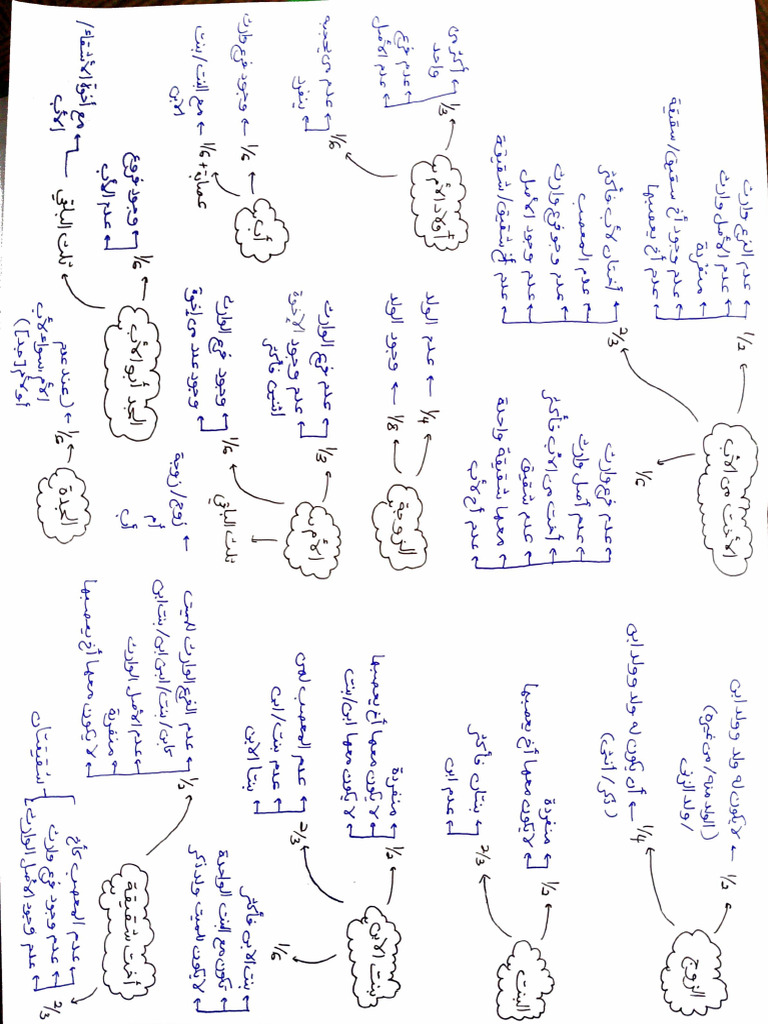 الزوج
1/2 ← لا يكون له ولد وولد ابن
(الولد منه / من غيره)
/ ولد الزنى
1/4 ← أن يكون له ولد وولد ابن
(ذكر / أنثى)
البنت
1/2
منفردة
لا يكون معها أخ يعصبها
2/3
بنتان فأكثر
عدم ابن
بنت الابن
1/2
منفردة
لا يكون معها أخ يعصبها
لا يكون معها ابن / بنت
2/3
عدم المعصب لهن
عدم بنت / ابن
بنتا الابن
1/6
بنت الابن فأكثر
تكون مع البنت الواحدة
لا يكون للميت ولد ذكر
أخت شقيقة
1/2
عدم الفرع الوارث للميت
كابن / بنت / ابن ابن / بنت ابن
عدم الأصل الوارث
منفردة
لا يكون معها أخ يعصبها
2/3
عدم المعصب كأخ
عدم وجود فرع وارث
عدم وجود الأصل الوارث
شقيقتان
الأخت من الأب
1/2
عدم الفرع وارث
عدم الأصل وارث
منفردة
عدم وجود أخ شقيق / شقيقة
عدم أخ يعصبها
2/3
أختان لأب فأكثر
عدم المعصب
عدم وجود فرع وارث
عدم وجود الأصل
عدم أخ شقيق / شقيقة
1/6
عدم فرع وارث
عدم أصل وارث
أخت من الأب فأكثر
عدم شقيق
معها شقيقة واحدة
عدم أخ لأب
الزوجة
1/4 ← عدم الولد
1/8 ← وجود الولد
الأم
1/3
عدم فرع الوارث
عدم وجود الإخوة
اثنين فأكثر
1/6
وجود فرع الوارث
وجود عدد من إخوة
ثلث الباقي
زوج / زوجة
أم
أب
الجدة
1/6 ← (عند عدم
الأم سواء لأب
أو لأم [جد])
أولاد الأم
1/3
أكثر من
واحد
عدم فرع
عدم الأصل
1/6
عدم من يحجبه
ينفرد
أب
1/6 ← وجود فرع وارث
1/6 + عصابة ← مع البنت / بنت
الابن
الجد أبو الأب
1/6
وجود فروع
عدم الأب
ثلث الباقي
مع أخوة الأشقاء /
الأب